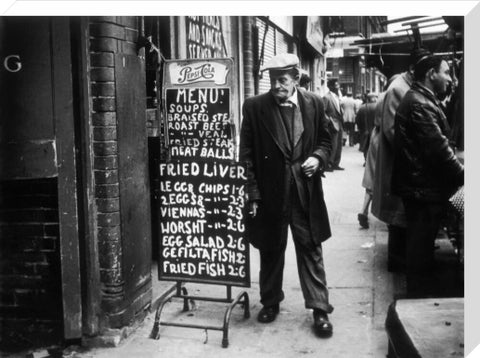 MEALS
AND SNACKS
SERVED
G
PEPSI-COLA
MENU
SOUPS.
BRAISED STE
ROAST BEEF
" " VEAL
FRIED STEAK
MEAT BALLS
FRIED LIVER
1 EGG & CHIPS 1·6
2 EGGS & " " 2·3
VIENNAS " " 2·3
WORSHT " " 2·6
EGG SALAD 2·6
GEFILTA FISH 2·
FRIED FISH 2·6